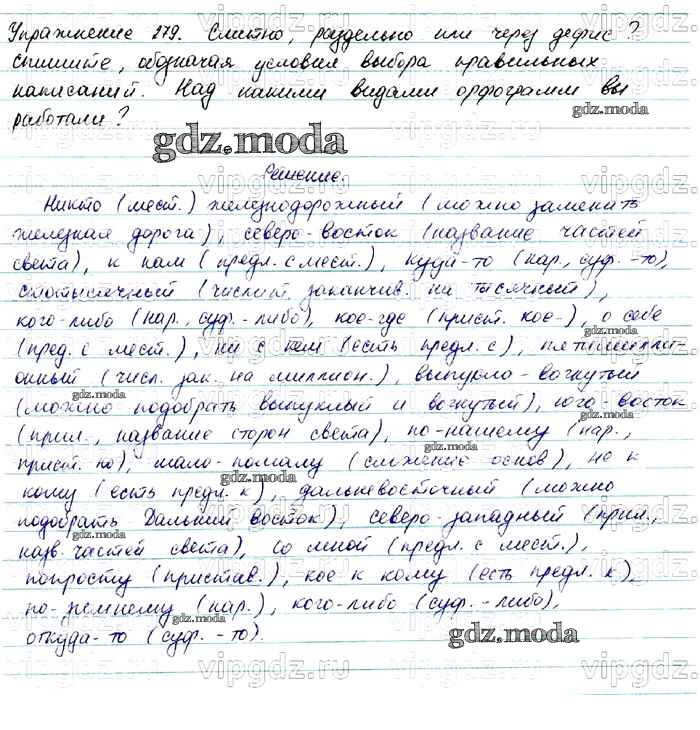 Упражнение 279. Слитно, раздельно или через дефис?
Спишите, обозначая условия выбора правильных
написаний. Над какими видами орфограмм вы
работали?
gdz.moda
Решение.
Никто (мест.) железнодорожный (можно заменить
железная дорога), северо-восток (название частей
света), к нам (предл. с мест.), куда-то (нар., суф. -то),
стотысячный (числит. заканчив. на тысячный),
кого-либо (нар., суф. -либо), кое-где (прист. кое-), о себе
(пред. с мест.), ни с кем (есть предл. с), пятимиллион-
онный (числ. зак. на миллион.), выпукло-вогнутый
(можно подобрать выпуклый и вогнутый), юго-восток
(прил., название сторон света), по-нашему (нар.,
прист. по), мало-помалу (сложение основ), не к
кому (есть предл. к), дальневосточный (можно
подобрать Дальний Восток), северо-западный (прил.,
назв. частей света), со мной (предл. с мест.),
попросту (пристав.), кое к кому (есть предл. к),
по-немному (нар.), кого-либо (суф. -либо),
откуда-то (суф. -то).
gdz.moda
vipgdz.ru